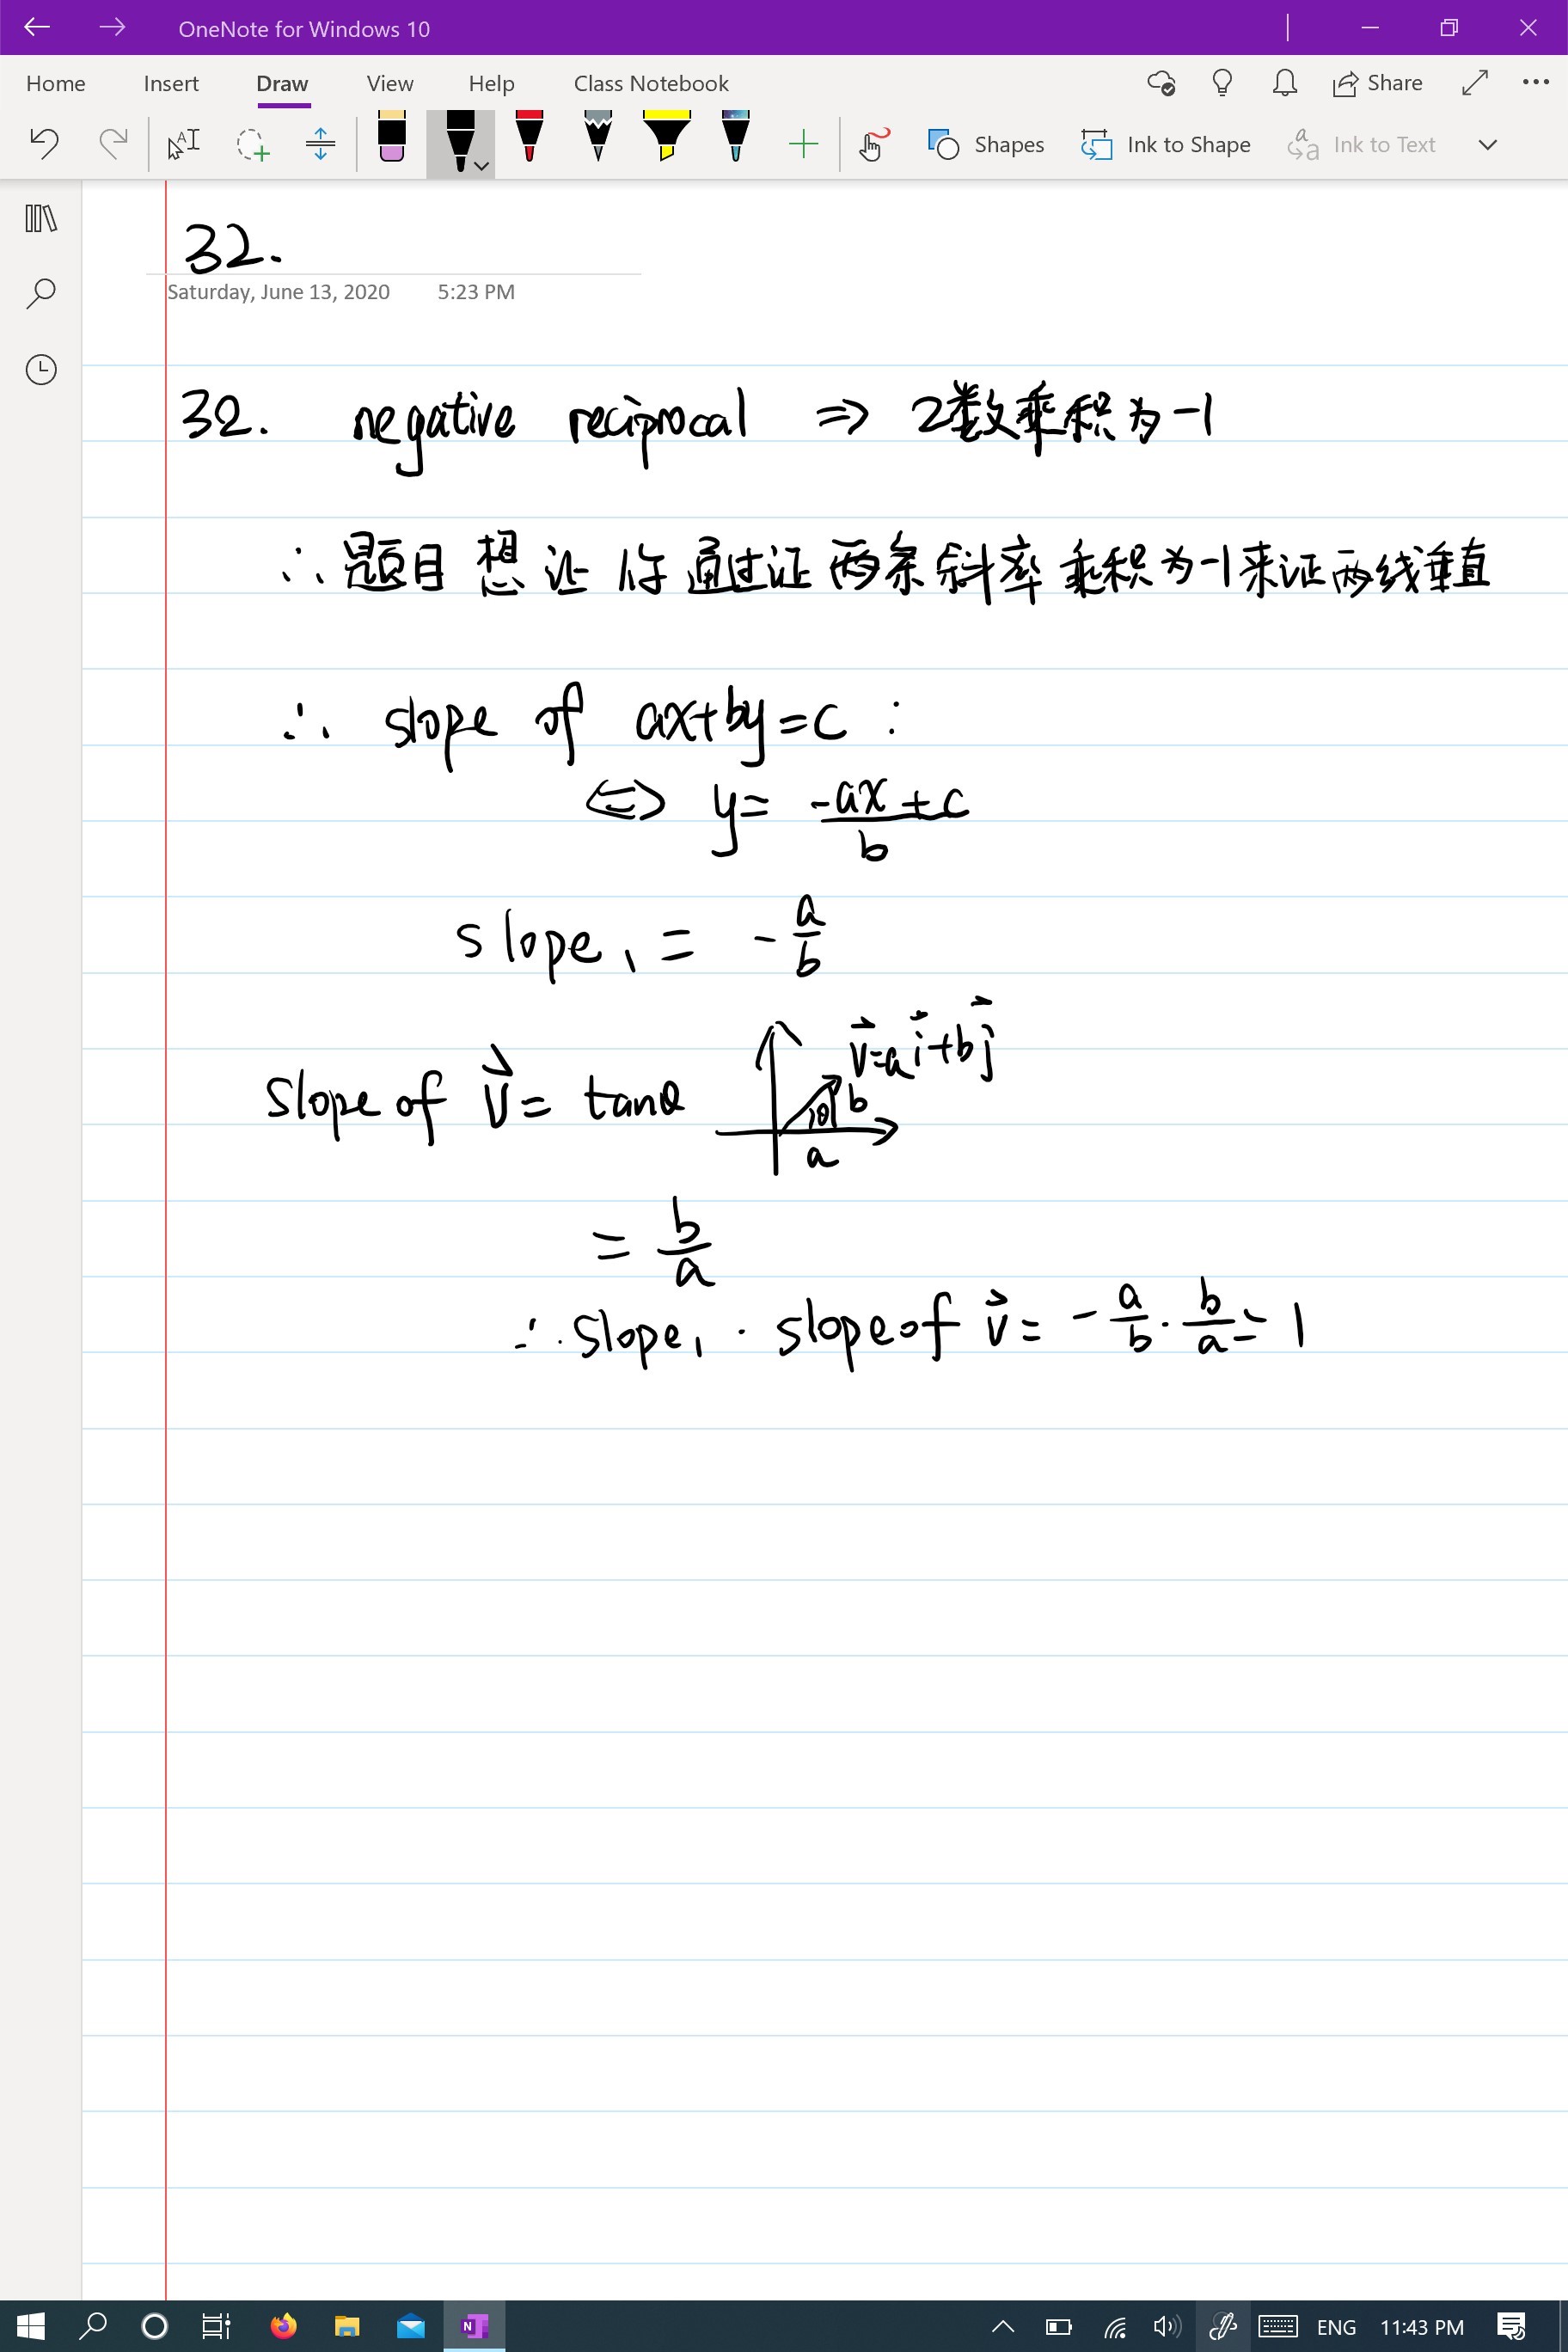 OneNote for Windows 10
Home Insert Draw View Help Class Notebook Share
Shapes Ink to Shape Ink to Text
32.
Saturday, June 13, 2020 5:23 PM
32. negative reciprocal ⇒ 2数乘积为-1
∴ 题目想让你通过证两条斜率乘积为-1来证两线垂直
∴ slope of ax+by=c :
⇔ y= (-ax+c)/b
slope₁ = -a/b
v⃗=ai⃗+bj⃗
slope of v⃗= tanθ θ b
a
= b/a
∴ slope₁ · slope of v⃗ = -a/b · b/a = - 1
ENG 11:43 PM